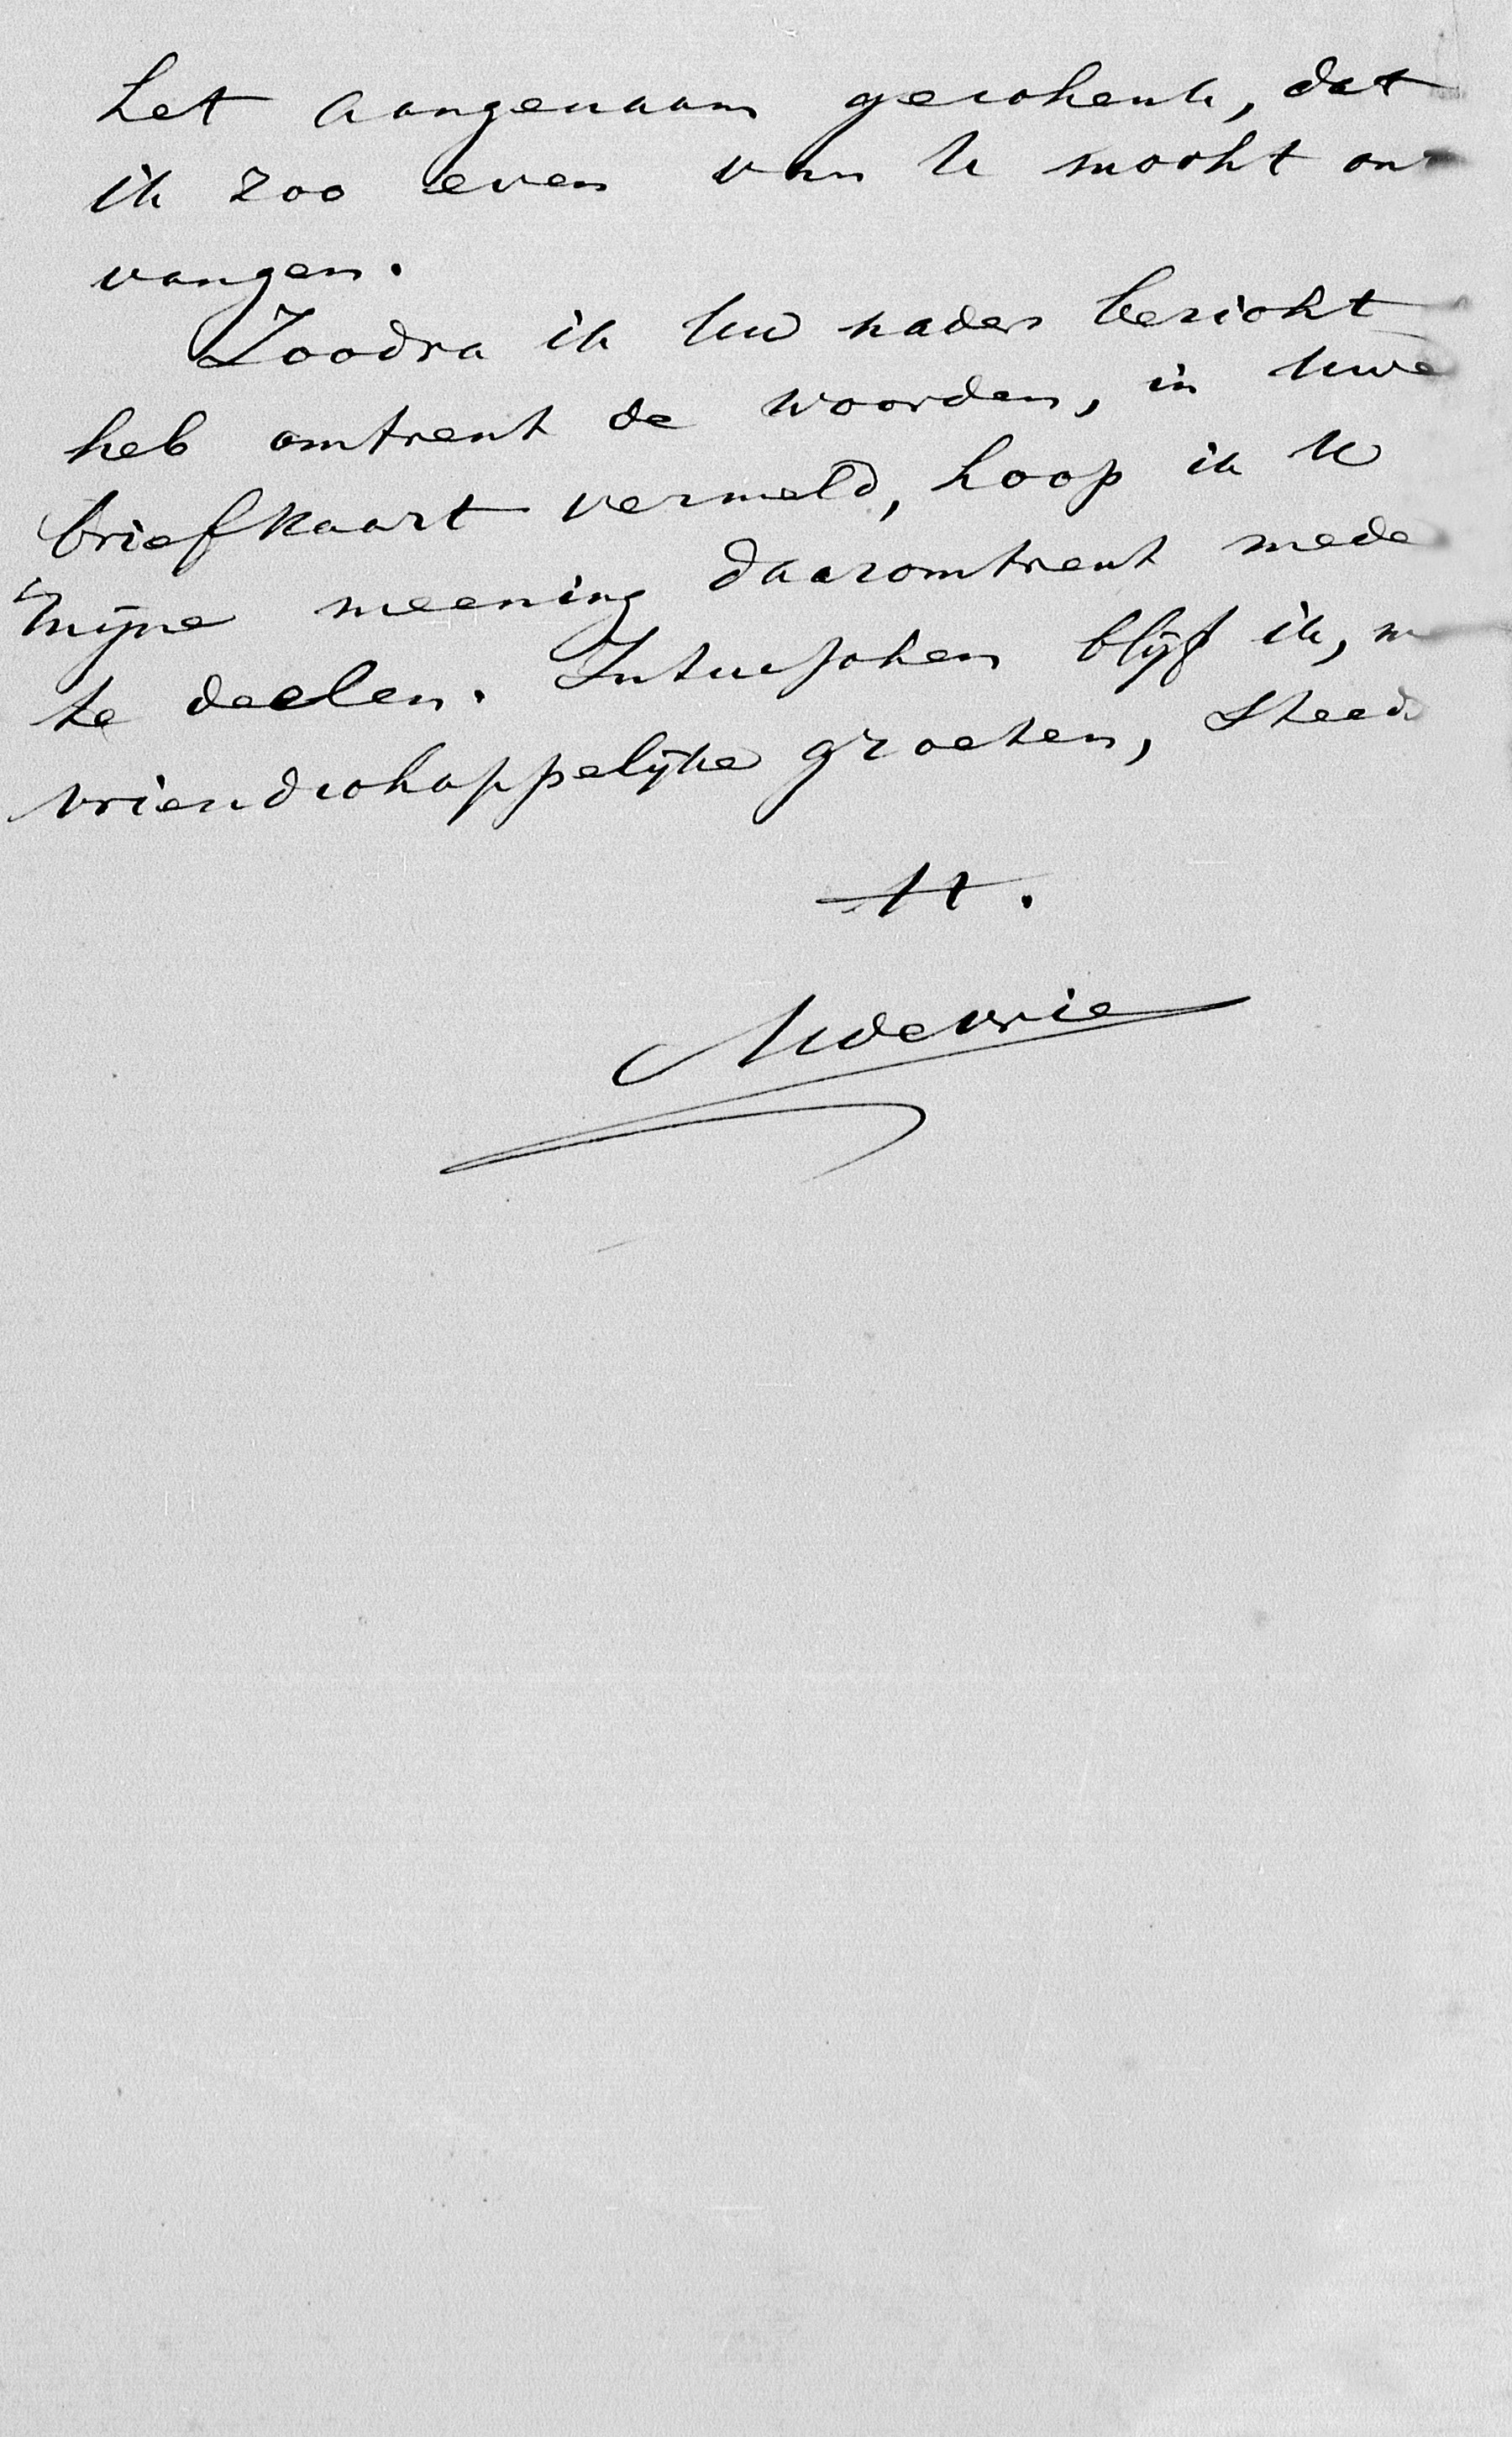 het aangenaam geschenk, dat
ik zoo even van U mocht ont
vangen.
Zoodra ik Uw nader bericht
heb omtrent de woorden, in Uwe
briefkaart vermeld, hoop ik U
mijne meening daaromtrent mede
te deelen. Intusschen blijf ik, m
vriendschappelijke groeten, steeds
tt.
MdeVrie